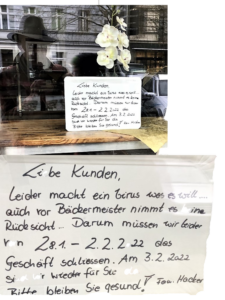 Liebe Kunden,
Leider macht ein Virus was es will....
auch vor Bäckermeister nimmt es
Rücksicht.. Darum müssen wir leider
von 28.1 - 2.2.22 das
Geschäft schliessen. Am 3.2.2022
wieder für Sie
Bitte bleiben Sie gesund! Fam.